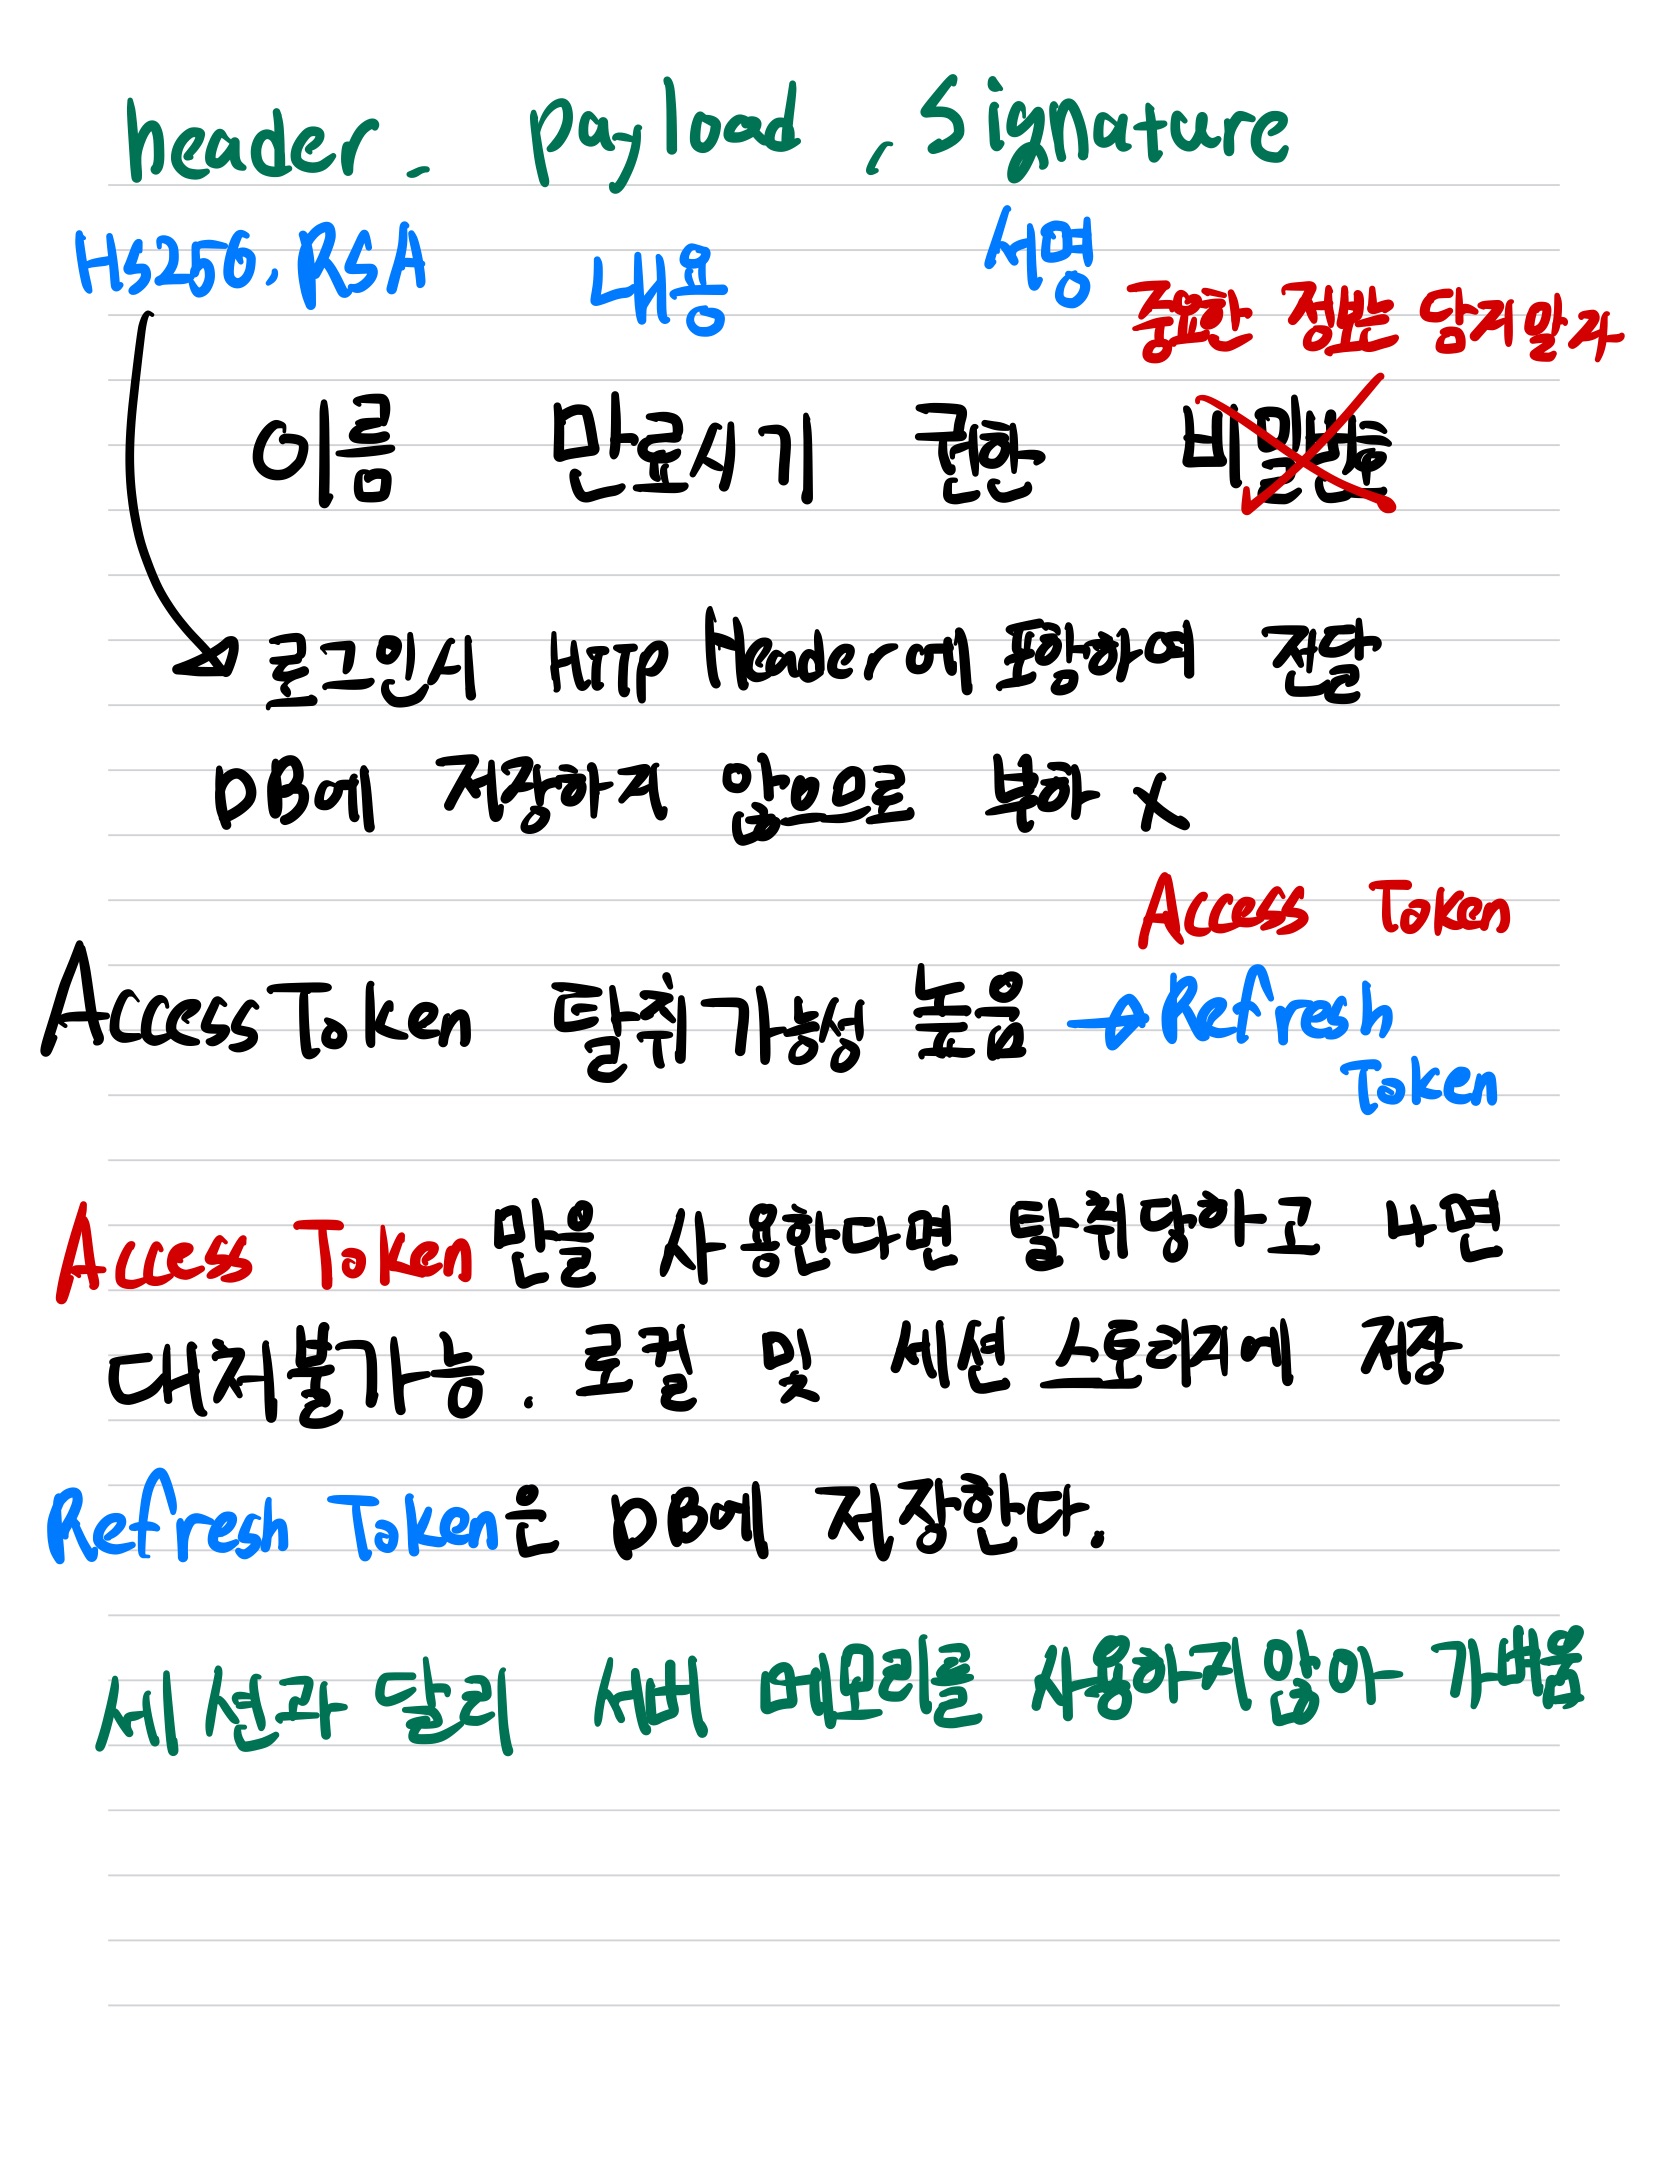 header. payload . Signature
Hs256. RSA 내용 서명
중요한 정보는 담지말자
이름 만료시기 권한 비밀번호
로그인시 HTTP Header에 포함하여 전달
DB에 저장하지 않으므로 부하 X
Access Token
AccessToken 탈취가능성 높음 → Refresh
Token
Access Token만을 사용한다면 탈취당하고 나면
대처불가능. 로컬 및 세션 스토리지에 저장
Refresh Token은 DB에 저장한다.
세션과 달리 서버 메모리를 사용하지않아 가벼움